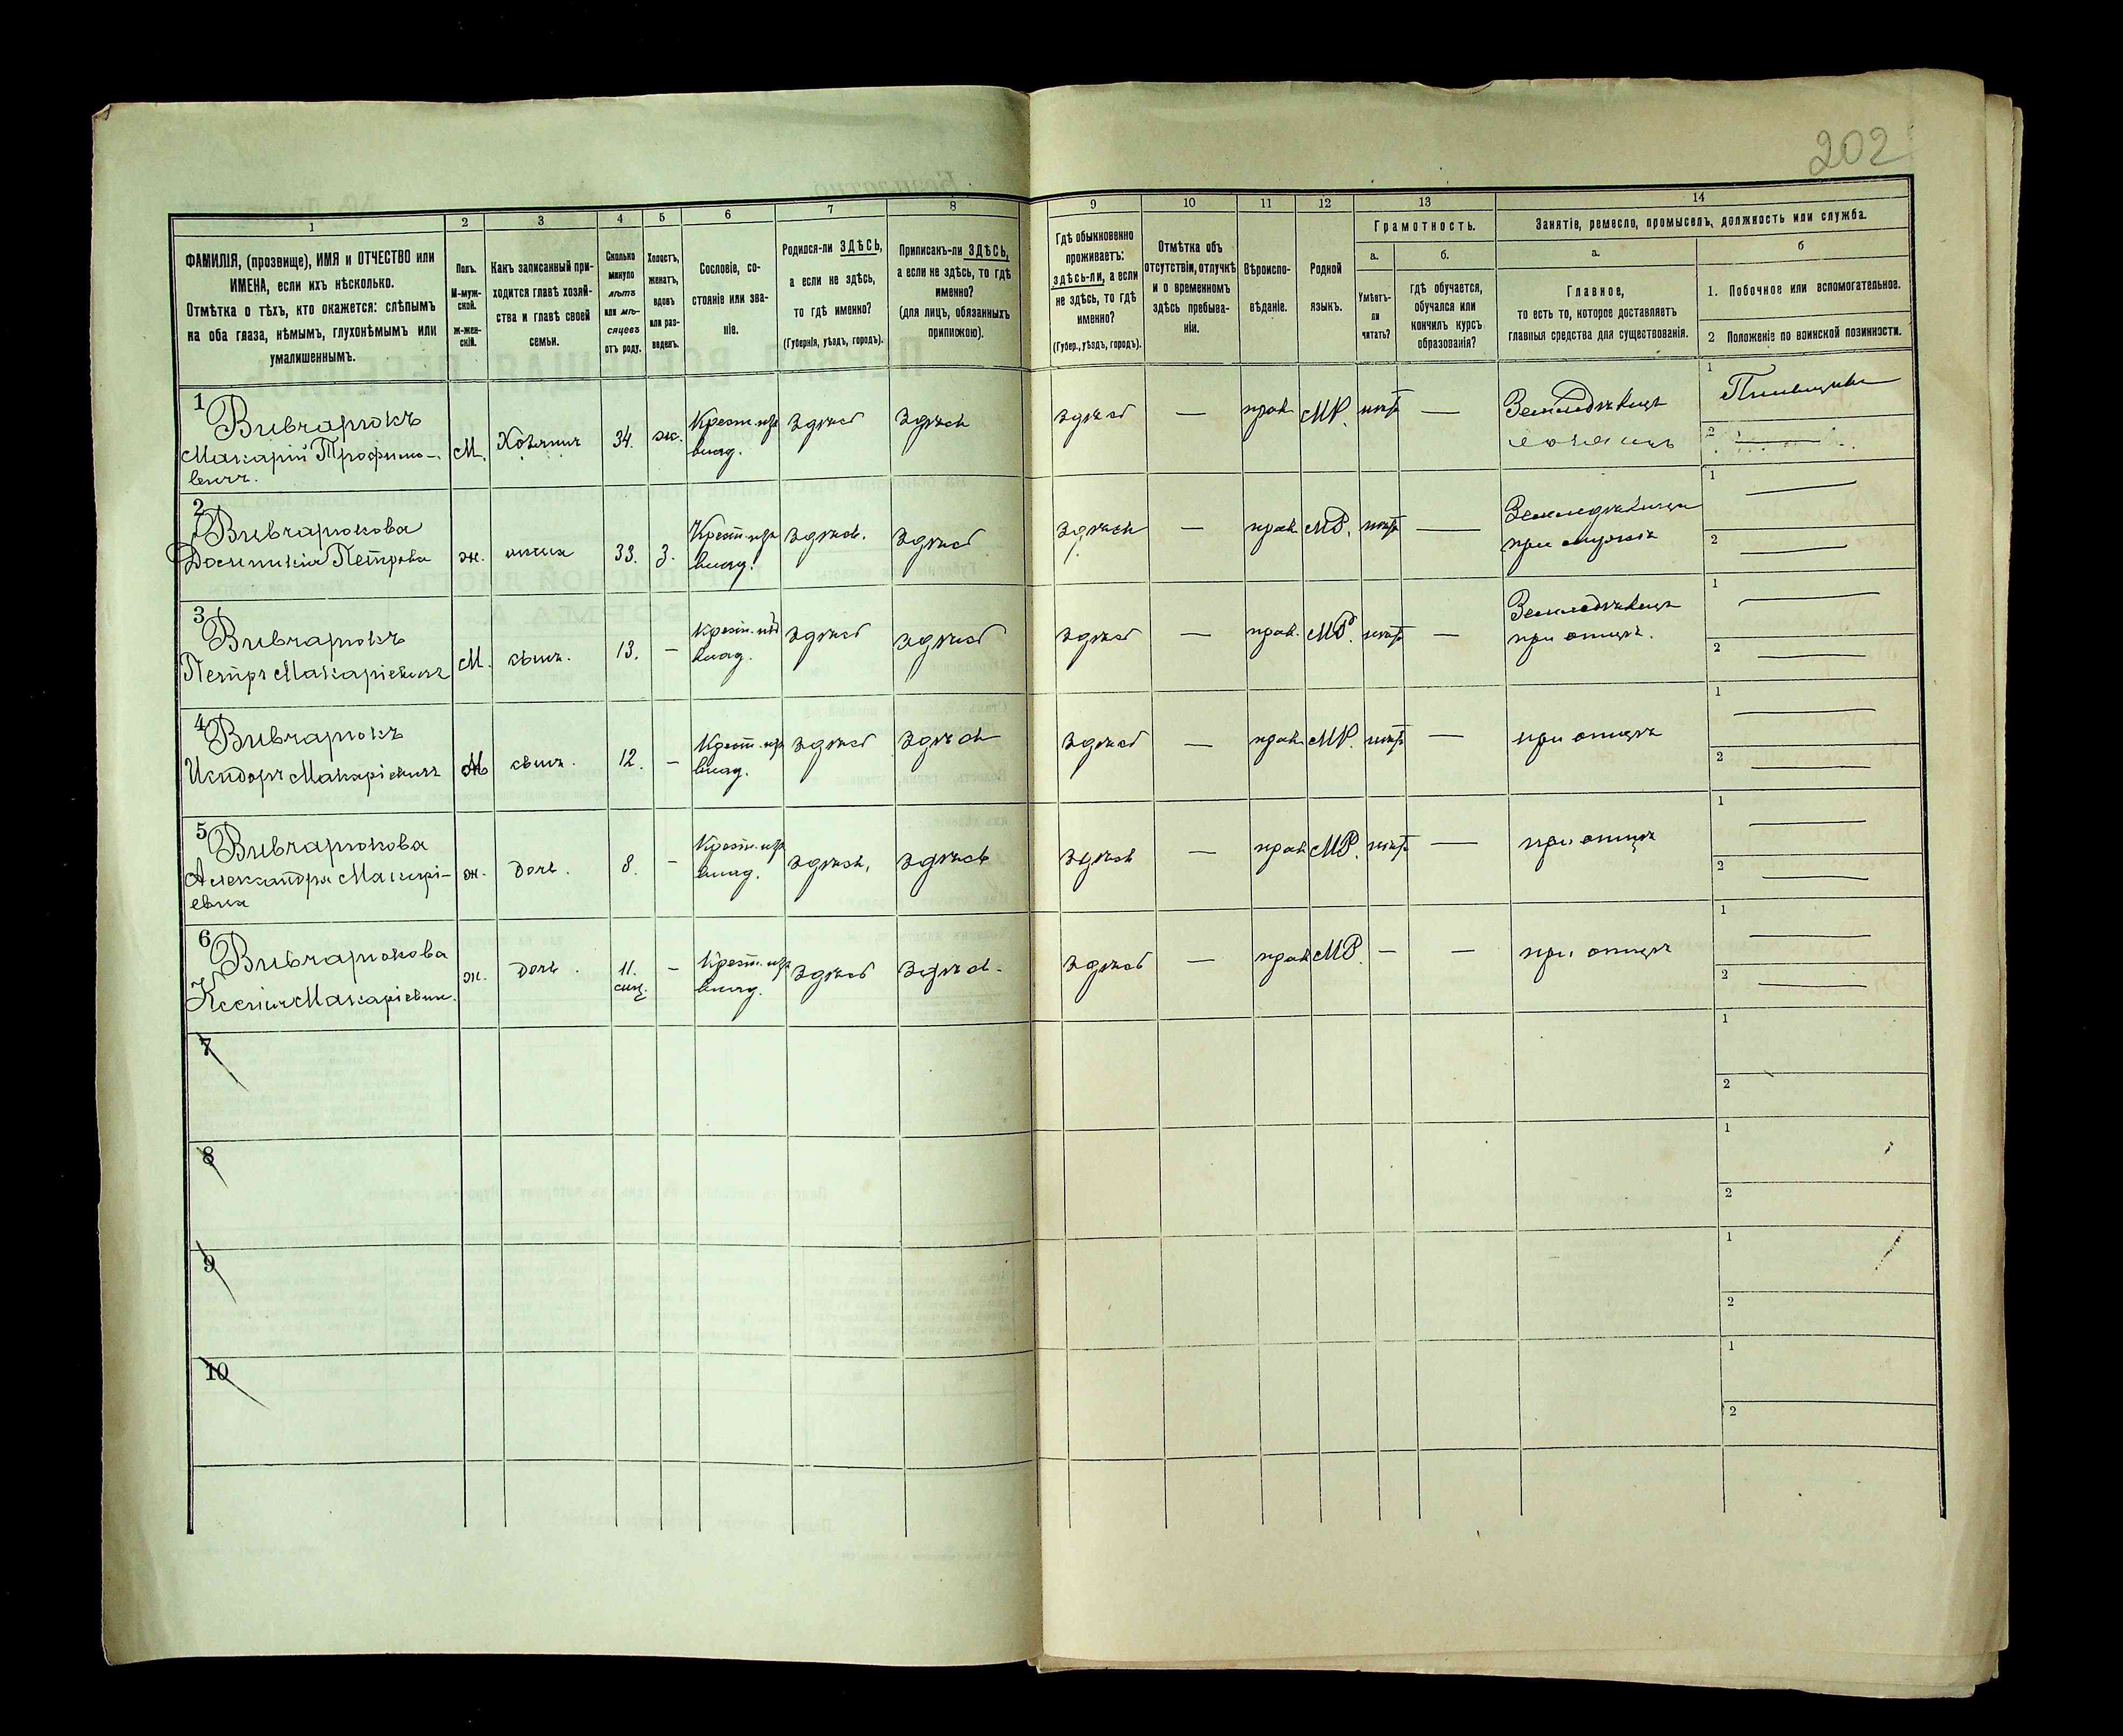 202
1 2 3 4 5 6 7 8 9 10 11 12 13 14
ФАМИЛІЯ, (прозвище), ИМЯ и ОТЧЕСТВО или
ИМЕНА, если ихъ нѣсколько.
Отмѣтка о тѣхъ, кто окажется: слѣпымъ
на оба глаза, нѣмымъ, глухонѣмымъ или
умалишеннымъ.
Полъ.
М-муж-
ской.
Ж-жен-
скій.
Какъ записанный при-
ходится главѣ хозяй-
ства и главѣ своей
семьи.
Сколько
минуло
лѣтъ
или мѣ-
сяцевъ
отъ роду.
Холостъ,
женатъ,
вдовъ
или раз-
веденъ.
Сословіе, со-
стояніе или зва-
ніе.
Родился-ли ЗДѢСЬ,
а если не здѣсь,
то гдѣ именно?
(Губернія, уѣздъ, городъ).
Приписанъ-ли ЗДѢСЬ,
а если не здѣсь, то гдѣ
именно?
(для лицъ, обязанныхъ
припискою).
Гдѣ обыкновенно
проживаетъ:
здѣсь-ли, а если
не здѣсь, то гдѣ
именно?
(Губер., уѣздъ, городъ).
Отмѣтка объ
отсутствіи, отлучкѣ
и о временномъ
здѣсь пребыва-
ніи.
Вѣроиспо-
вѣданіе.
Родной
языкъ.
Грамотность.
а.
Умѣетъ-
ли
читать?
б.
гдѣ обучается,
обучался или
кончилъ курсъ
образованія?
Занятіе, ремесло, промыселъ, должность или служба.
а.
Главное,
то есть то, которое доставляетъ
главныя средства для существованія.
б
1. Побочное или вспомогательное.
2 Положеніе по воинской повинности.
1 Вивчарюкъ
Макарій Трофимо-
вичъ.
М. Хозяинъ 34. ж. Крест. изъ
влад.
здѣсь здѣсь здѣсь — прав. МР. нѣтъ — Земледѣлецъ
хозяинъ
1
2 —
2 Вивчарюкова
Доминикія Петрова
ж. жена 33. З. Крест. изъ
влад.
здѣсь. здѣсь здѣсь — прав. МР. нѣтъ — Земледѣлица
при мужѣ
1 —
2 —
3 Вивчарюкъ
Петръ Макаріевичъ
М. сынъ. 13. — Крест. изъ
влад.
здѣсь здѣсь здѣсь — прав. МР. нѣтъ — Земледѣлецъ
при отцѣ.
1 —
2 —
4 Вивчарюкъ
Исидоръ Макаріевичъ
М сынъ. 12. — Крест. изъ
влад.
здѣсь здѣсь здѣсь — прав. МР. нѣтъ — при отцѣ
1 —
2 —
5 Вивчарюкова
Александра Макарі-
евна
ж. дочь. 8. — Крест. изъ
влад.
здѣсь, здѣсь здѣсь — прав. МР. нѣтъ — при отцѣ
1 —
2 —
6 Вивчарюкова
Ксенія Макаріевна.
ж. дочь. 11. — Крест. изъ
влад.
здѣсь здѣсь. здѣсь — прав. МР. — — при отцѣ
1 —
2 —
7
1
2
8
1
2
9
1
2
10
1
2